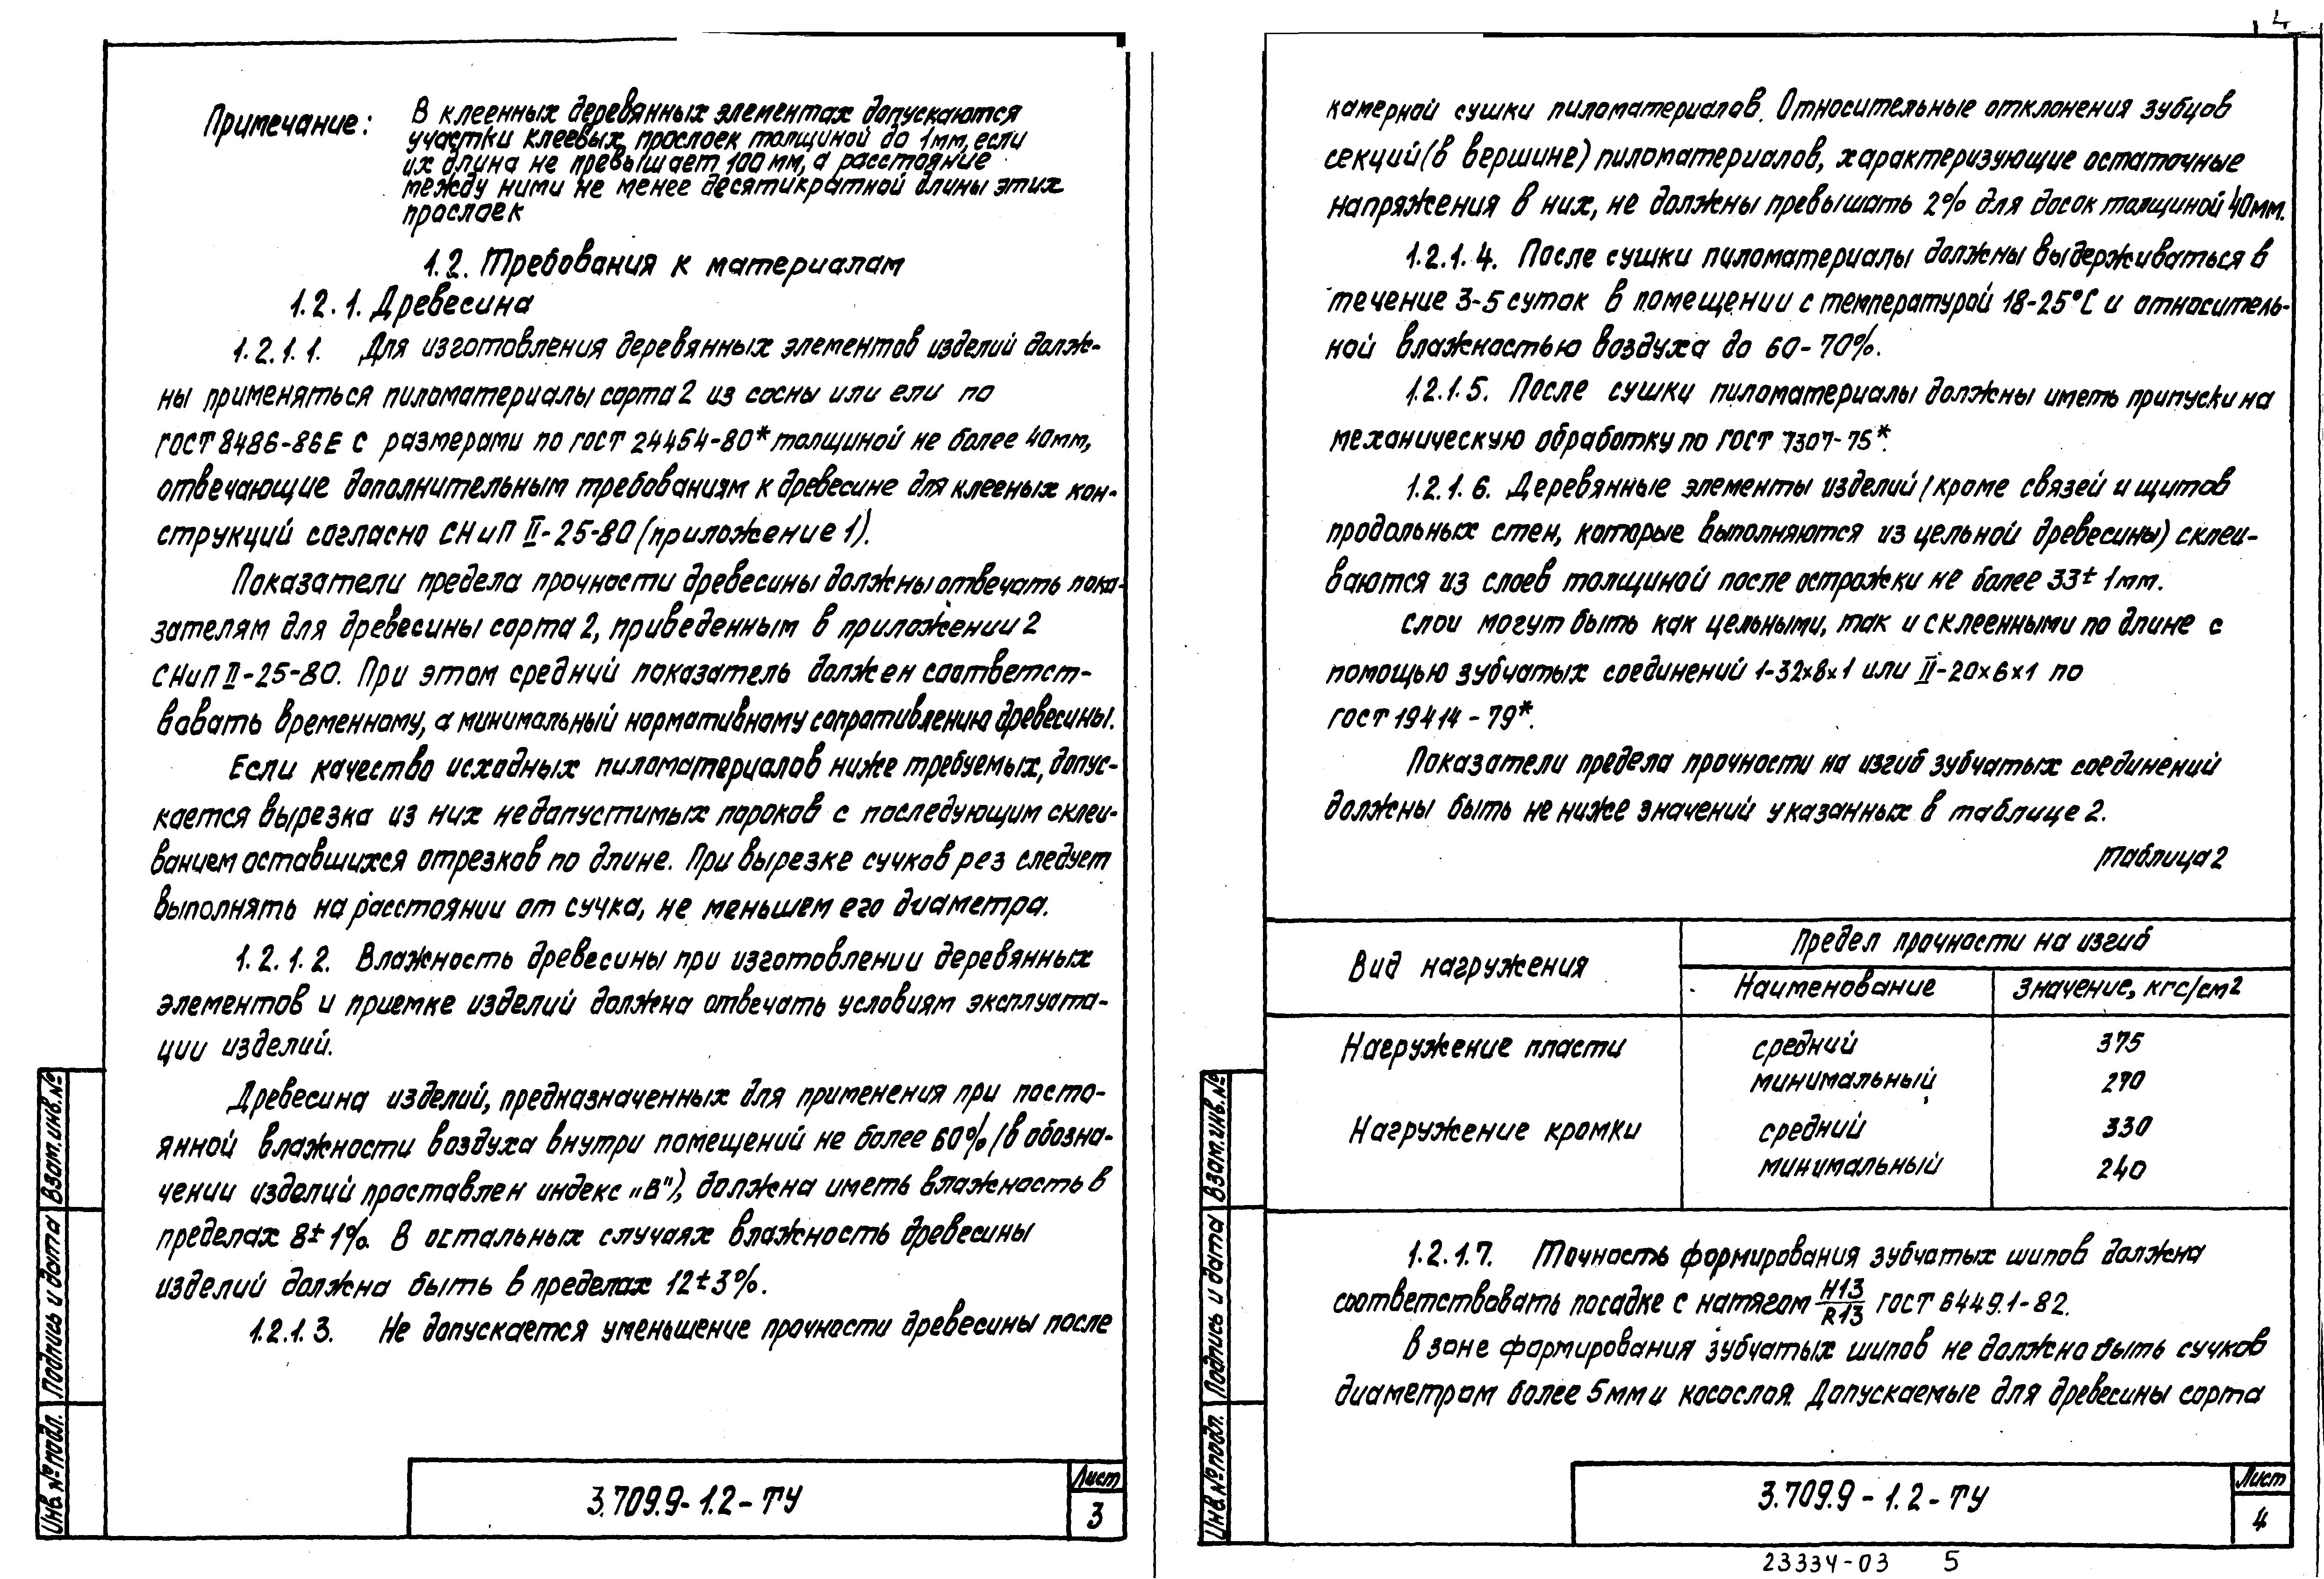 Примечание: В клеенных деревянных элементах допускаются
участки клеевых прослоек толщиной до 1мм, если
их длина не превышает 100 мм, а расстояние
между ними не менее десятикратной длины этих
прослоек
1.2. Требования к материалам
1.2.1. Древесина
1.2.1.1. Для изготовления деревянных элементов изделий долж-
ны применяться пиломатериалы сорта 2 из сосны или ели по
ГОСТ 8486-86Е с размерами по ГОСТ 24454-80* толщиной не более 40мм,
отвечающие дополнительным требованиям к древесине для клееных кон-
струкций согласно СНиП II-25-80 (приложение 1).
Показатели предела прочности древесины должны отвечать пока-
зателям для древесины сорта 2, приведенным в приложении 2
СНиП II-25-80. При этом средний показатель должен соответст-
вовать временному, а минимальный нормативному сопротивлению древесины.
Если качество исходных пиломатериалов ниже требуемых, допус-
кается вырезка из них недопустимых пороков с последующим склеи-
ванием оставшихся отрезков по длине. При вырезке сучков рез следует
выполнять на расстоянии от сучка, не меньшем его диаметра.
1.2.1.2. Влажность древесины при изготовлении деревянных
элементов и приемке изделий должна отвечать условиям эксплуата-
ции изделий.
Древесина изделий, предназначенных для применения при посто-
янной влажности воздуха внутри помещений не более 60% (в обозна-
чении изделий проставлен индекс „В"), должна иметь влажность в
пределах 8±1%. В остальных случаях влажность древесины
изделий должна быть в пределах 12±3%.
1.2.1.3. Не допускается уменьшение прочности древесины после
Инв. № подл. Подпись и дата Взам. инв. №
3.709.9-1.2-ТУ
Лист
3
4
камерной сушки пиломатериалов. Относительные отклонения зубцов
секций (в вершине) пиломатериалов, характеризующие остаточные
напряжения в них, не должны превышать 2% для досок толщиной 40мм.
1.2.1.4. После сушки пиломатериалы должны выдерживаться в
течение 3-5 суток в помещении с температурой 18-25°С и относитель-
ной влажностью воздуха до 60-70%.
1.2.1.5. После сушки пиломатериалы должны иметь припуски на
механическую обработку по ГОСТ 7307-75*.
1.2.1.6. Деревянные элементы изделий (кроме связей и щитов
продольных стен, которые выполняются из цельной древесины) склеи-
ваются из слоев толщиной после острожки не более 33±1мм.
Слои могут быть как цельными, так и склеенными по длине с
помощью зубчатых соединений 1-32×8×1 или II-20×6×1 по
ГОСТ 19414-79*.
Показатели предела прочности на изгиб зубчатых соединений
должны быть не ниже значений указанных в таблице 2.
Таблица 2
Вид нагружения
Предел прочности на изгиб
Наименование
Значение, кгс/см2
Нагружение пласти средний 375
минимальный 270
Нагружение кромки средний 330
минимальный 240
1.2.1.7. Точность формирования зубчатых шипов должна
соответствовать посадке с натягом H13/R13 ГОСТ 6449.1-82.
В зоне формирования зубчатых шипов не должно быть сучков
диаметром более 5мм и косослоя. Допускаемые для древесины сорта
Инв. № подл. Подпись и дата Взам. инв. №
3.709.9-1.2-ТУ
Лист
4
23334-03 5